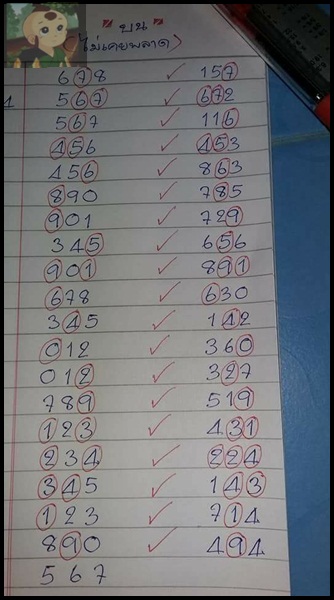 " บน "
ไม่เคยพลาด)
678 ✓ 157
567 ✓ 672
567 ✓ 116
456 ✓ 453
456 ✓ 863
890 ✓ 785
901 ✓ 729
345 ✓ 656
901 ✓ 891
678 ✓ 630
345 ✓ 142
012 ✓ 360
012 ✓ 327
789 ✓ 519
123 ✓ 431
234 ✓ 224
345 ✓ 143
123 ✓ 714
890 ✓ 494
567